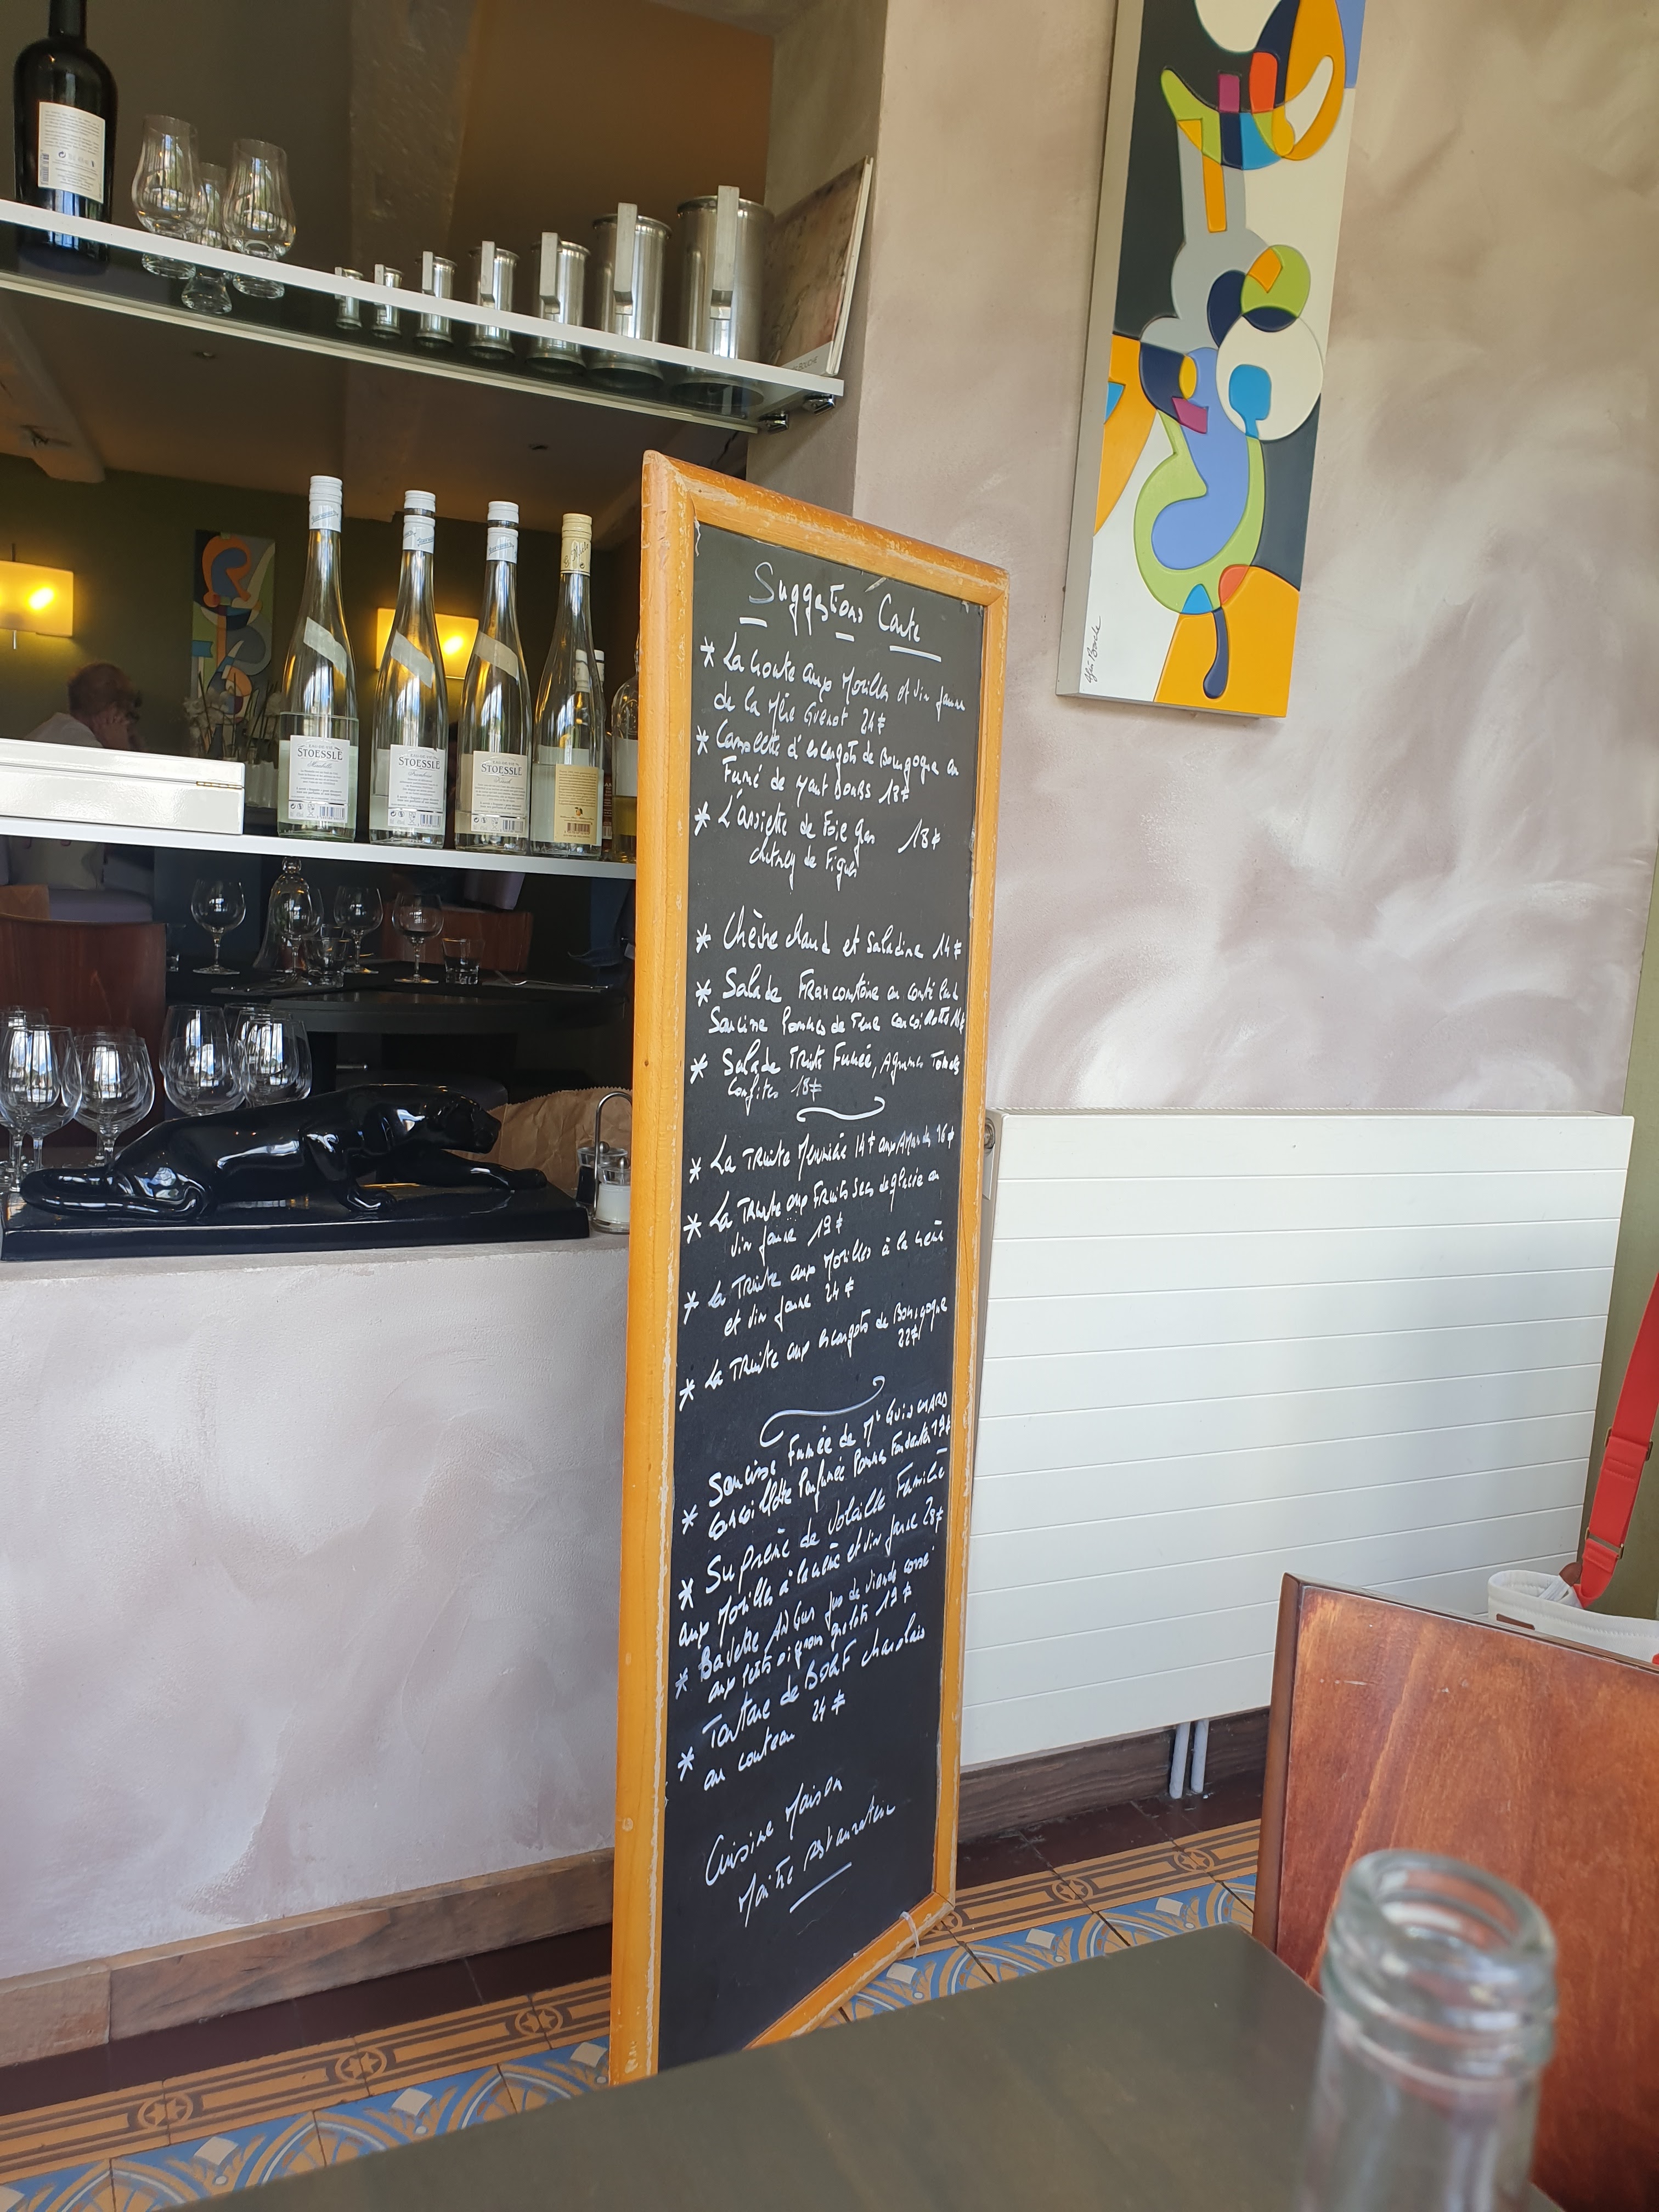 Suggestions Carte
* La croute aux Morilles et vin jaune
de la Mère 24€
* Cassolette d'escargots de Bourgogne au
Fumé de Haut Doubs 18€
* L'Assiette de Foie gras 18€
chutney de Figues
* Chèvre chaud et Saladine 14€
* Salade Franc comtoise au comté lard
Saucisse Pommes de Terre cancoillotte
* Salade Truite Fumée, Agrumes Tomates
confites 18€
* La Truite Meunière 14€ aux Amandes 16€
* La Truite aux Fruits Secs déglacée au
vin jaune 19€
* La Truite aux Morilles à la crème
et vin jaune 24€
* La Truite aux escargots de Bourgogne
22€
* Saucisse Fumée de Mr
Cancoillotte Parfumée Pommes Fondantes 19€
* Suprême de Volaille Fermière
aux Morilles à la crème et vin jaune 28€
* Bavette ANGus jus de viande corsé
aux petits oignons grelots 19€
* Tartare de BOEUF charolais
au couteau 24€
Cuisine Maison
Maître restaurateur
STOESSLE
STOESSLE
STOESSLE